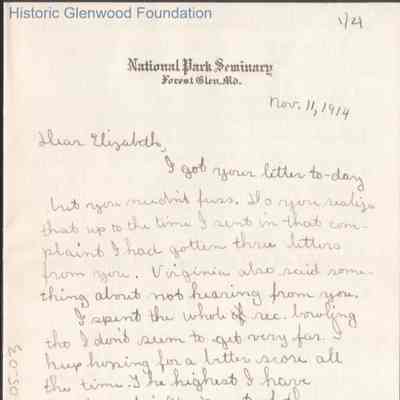 Historic Glenwood Foundation
1/21
National Park Seminary
Forest Glen, Md.
Nov. 11, 1914
Dear Elizabeth,
I got your letter to-day
but you needn't fuss. Do you realize
that up to the time I sent in that com-
plaint I had gotten three letters
from you. Virginia also said some-
thing about not hearing from you.
I spent the whole of rec. bowling
tho I don't seem to get very far. I
keep hoping for a better score all
the time. The highest I have
05-03